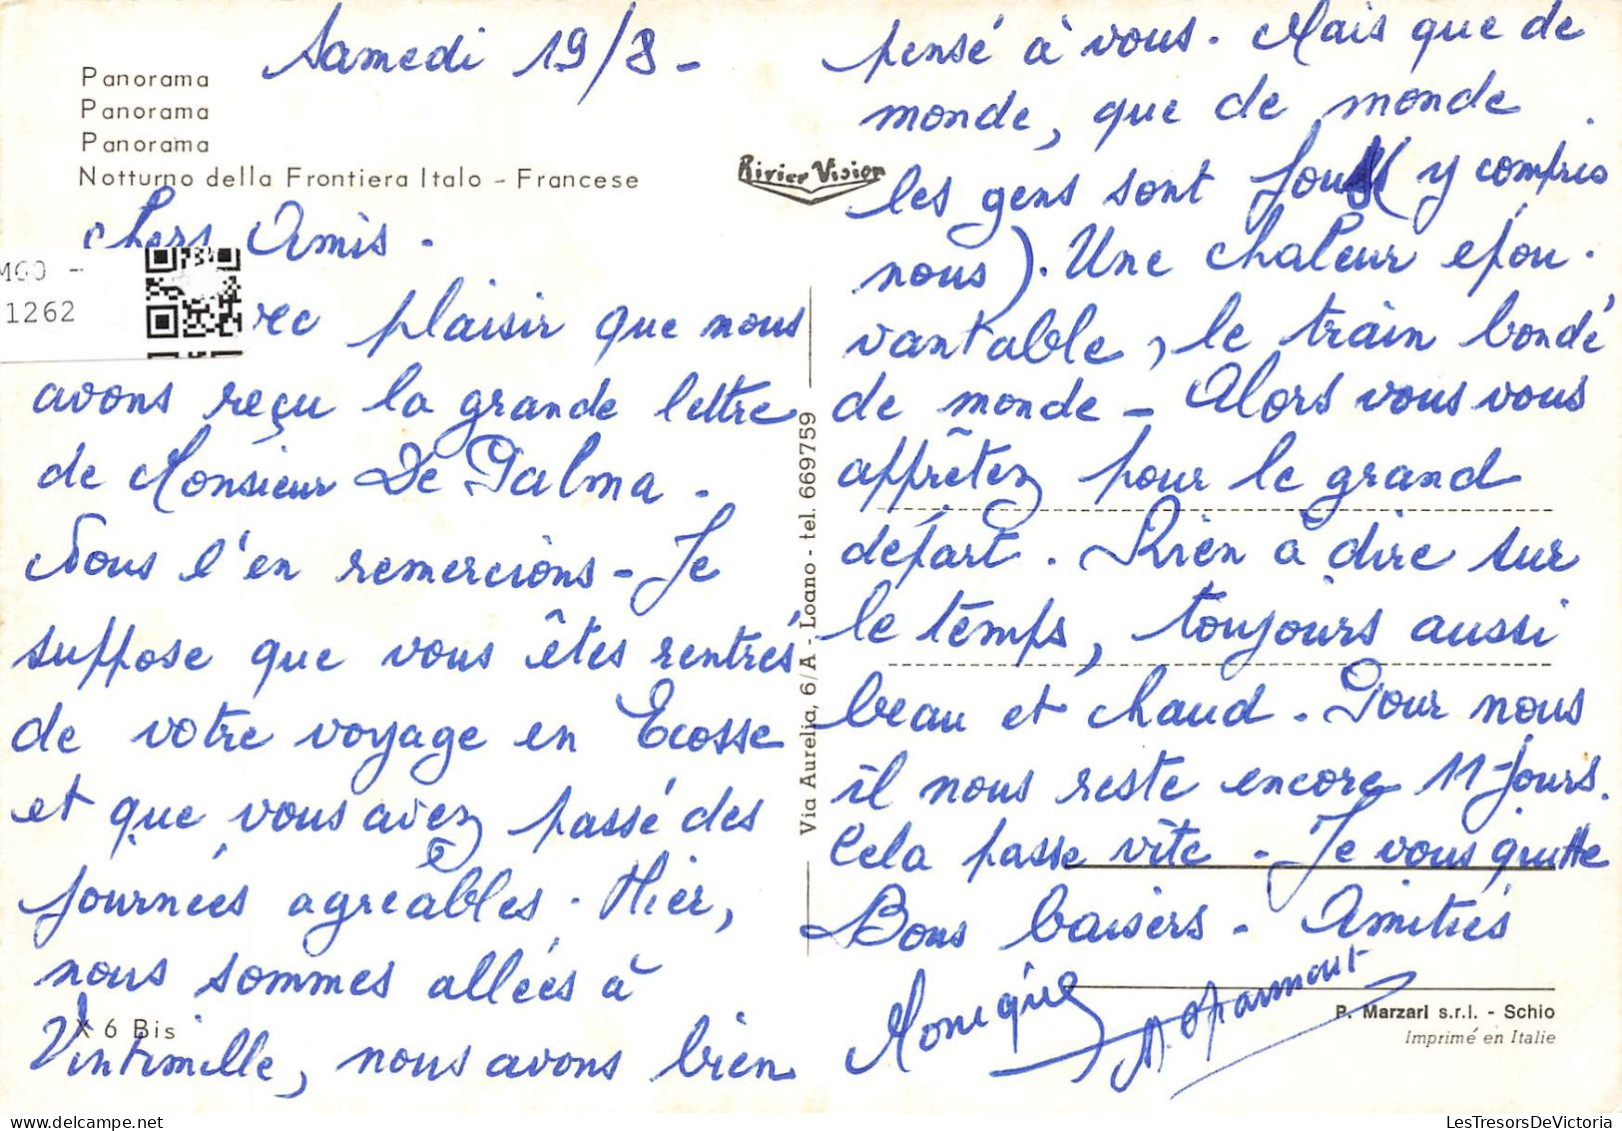 Panorama
Panorama
Panorama
Notturno della Frontiera Italo - Francese
Rivier Vision
Samedi 19/8 -
Chers Amis.
1262
plaisir que nous
avons reçu la grande lettre
de Monsieur De Palma.
Nous l'en remercions - Je
suppose que vous êtes rentrés
de votre voyage en Ecosse
et que vous avez passé des
journées agréables. Hier,
nous sommes allées à
X 6 Bis
Vintimille, nous avons bien
pensé à vous. Mais que de
monde, que de monde.
les gens sont fous (y compris
nous). Une chaleur épou-
vantable, le train bondé
de monde - Alors vous vous
apprêtez pour le grand
départ. Rien à dire sur
le temps, toujours aussi
beau et chaud. Pour nous
il nous reste encore 11 jours.
Cela passe vite. Je vous quitte
Bons baisers - Amitiés
Monique
Via Aurelia, 6/A - Loano - tel. 669759
P. Marzari s.r.l. - Schio
Imprimé en Italie
LesTresorsDeVictoria.com